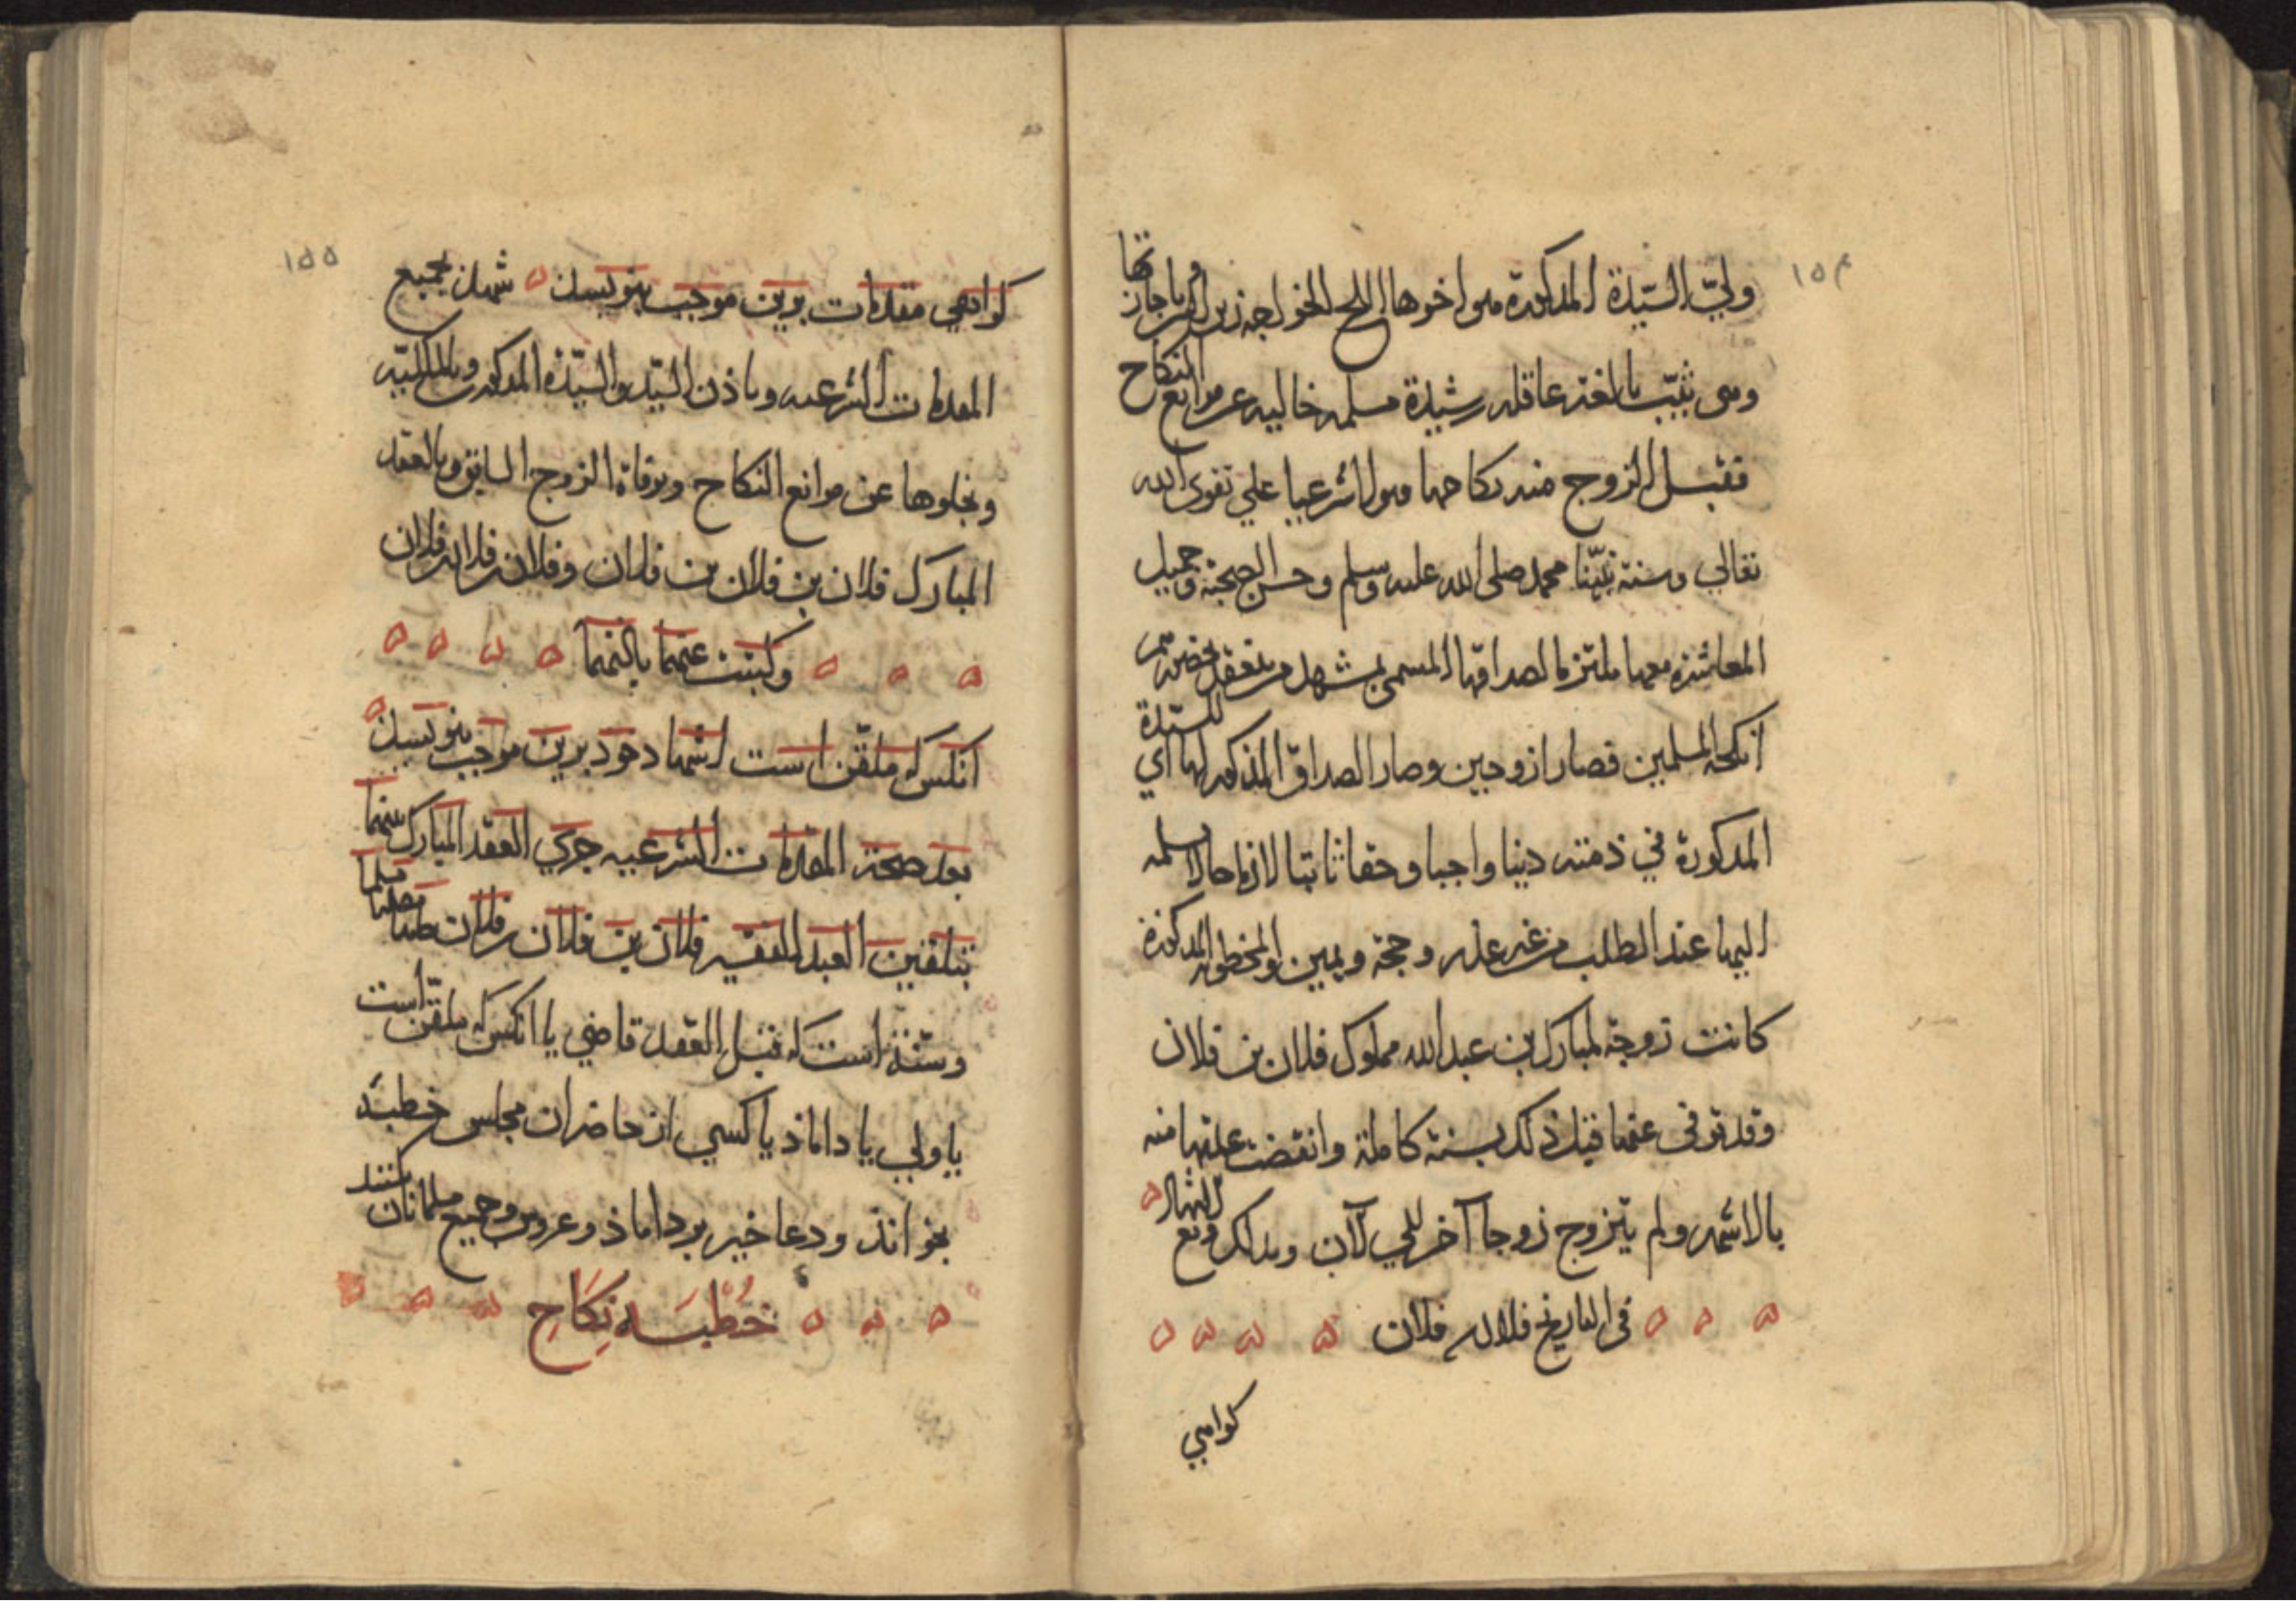 ١٥٤
ولي السيّدة المذكورة هو اخوها الملح الخواجه زين الدين باجازتها
وهي ثيّب بالغة عاقله رشيدة مسلمه خاليه عن موانع النكاح
فقبل الزوج منه نكاحها قبولا شرعيا علي تقوى الله
تعالي وسنة نبيّنا محمد صلى الله عليه وسلم وحسن الصحبة وجميل
المعاشرة معها ملتزما لصداقها المسمى بمشهد من ينعقد بحضرتهم
انكحة المسلمين فصارا زوجين وصار الصداق المذكور لها اي للسيّدة
المذكورة في ذمته دينا واجبا وحقا ثابتا لازما حالا يسلمه
اليها عند الطلب من غير علة وحجة ويمين والمخطوبة المذكورة
كانت زوجة لمبارك بن عبد الله مملوك فلان بن فلان
وقد توفى عنها قبل ذلك بسنة كاملة وانقضت عدتها منه
بالاشهر ولم يتزوج زوجا آخر الي الآن وبذلك وقع الاشهاد
في التاريخ فلان بن فلان
كواهي
١٥٥
كواهي مقدمات برين موجب بنويسد شهد بجميع
المقدمات الشرعيه وباذن السيّد والسيّدة المذكور وبالمالكيّه
وبخلوها عن موانع النكاح وبوفاة الزوج السابق وبالعقد
المبارك فلان بن فلان بن فلان وفلان بن فلان بن فلان
وكتبت عنهما باذنهما
انكس كه ملقّن است اشهاد خود برين موجب بنويسد
بعد صحة المقدمات الشرعيه جري العقد المبارك بينهما
بتلقين العبد الفقير فلان بن فلان بن فلان حامدا مصليا مسلما
وسنّة است كه قبل العقد قاضي يا انكس كه ملقّن است
يا ولي يا داماذ يا كسي از حاضران مجلس خطبهٔ
بخواند ودعا خير بر داماذ وعروس وجميع مسلمانان كنند
خُطبَه نِكَاحِ